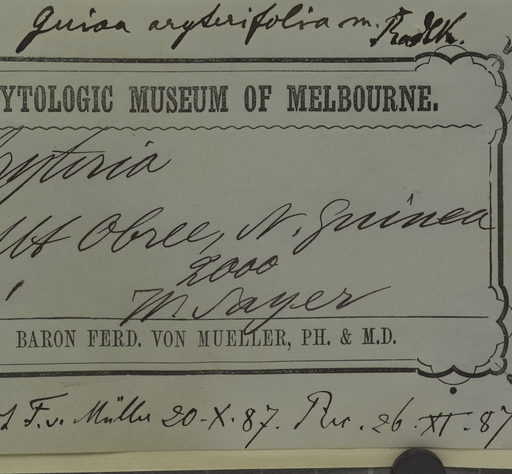 Guioa aryterifolia m. Radlk.
YTOLOGIC MUSEUM OF MELBOURNE.
ryteria
Mt Obree, N. Guinea
2000
W Sayer
BARON FERD. VON MUELLER, PH. & M.D.
F. v. Müller 20-X-87. Rec. 26-XI-87